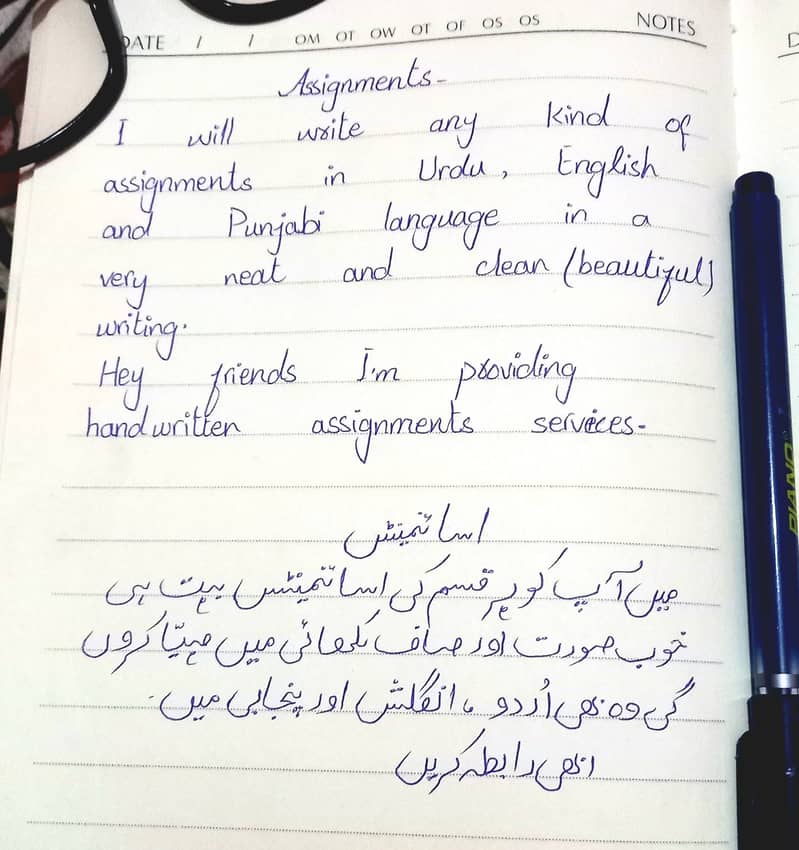 DATE / / OM OT OW OT OF OS OS NOTES
Assignments-
I will write any kind of
assignments in Urdu, English
and Punjabi language in a
very neat and clean (beautiful)
writing.
Hey friends I'm providing
handwritten assignments services-
اسائمینٹس
میں آپ کو ہر قسم کی اسائمینٹس بہت ہی
خوب صورت اور صاف لکھائی میں مہیّا کروں
گی وہ بھی اُردو ، انگلش اور پنجابی میں۔
ابھی رابطہ کریں
PIANO